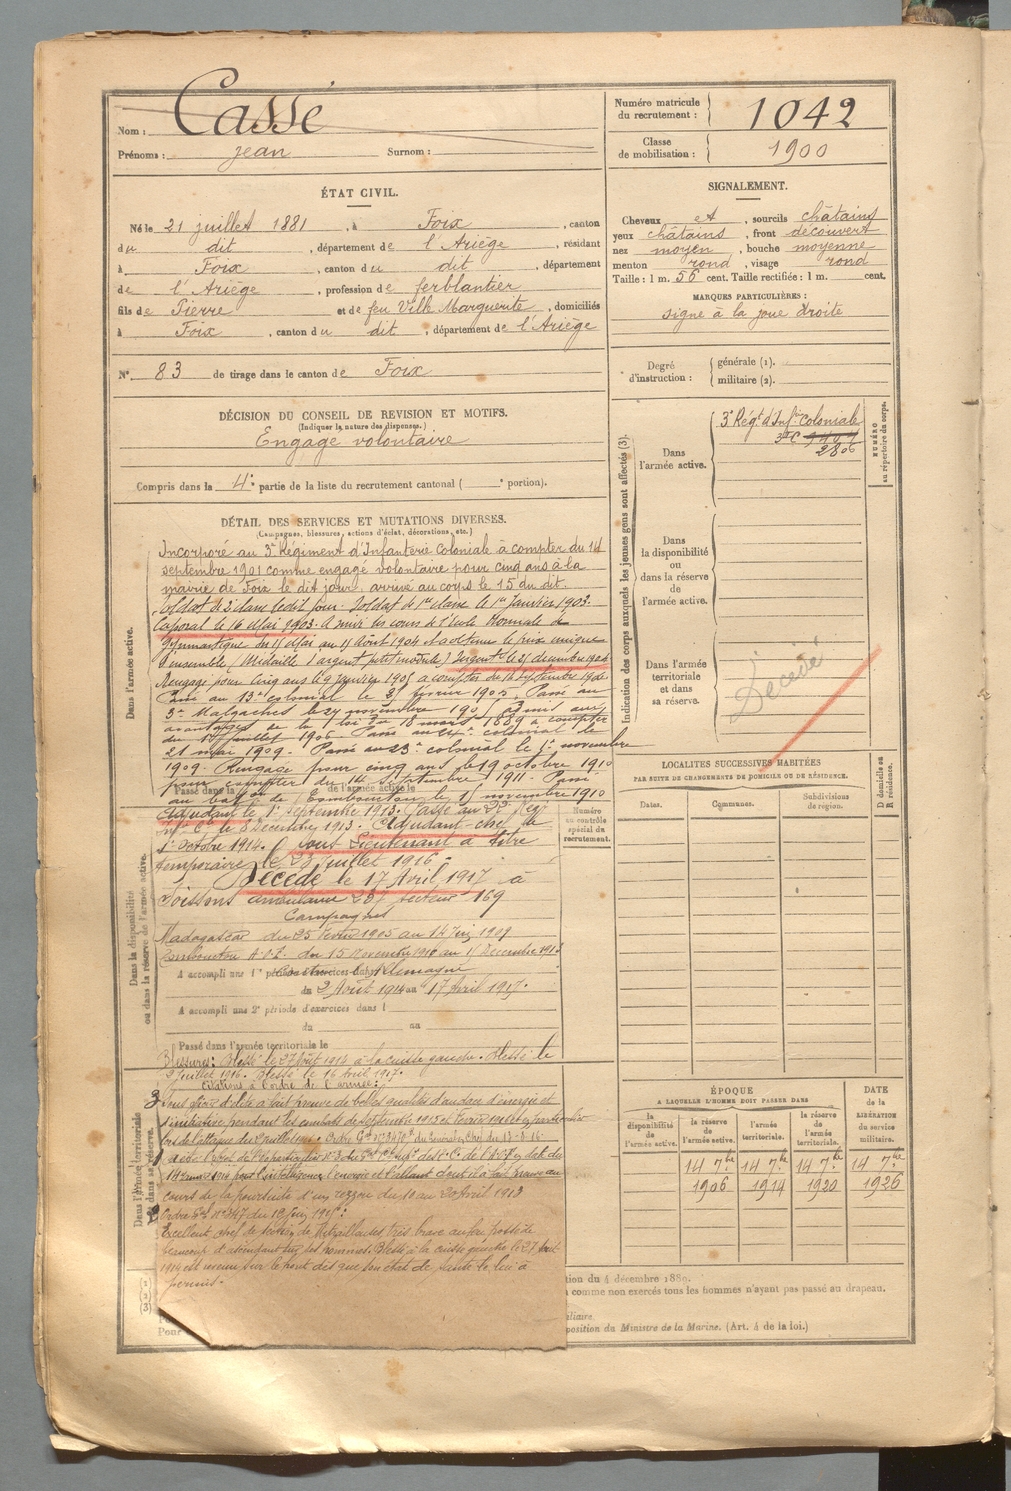 Nom : Cassé
Prénoms : Jean Surnom :
Numéro matricule du recrutement : 1042
Classe de mobilisation : 1900
ÉTAT CIVIL.
Né le 21 juillet 1881, à Foix, canton
du dit, département de l'Ariège, résidant
à Foix, canton du dit, département
de l'Ariège, profession de ferblantier
fils de Pierre et de feu Ville Marguerite, domiciliés
à Foix, canton du dit, département de l'Ariège
N° 83 de tirage dans le canton de Foix
DÉCISION DU CONSEIL DE REVISION ET MOTIFS.
(Indiquer la nature des dispenses.)
Engagé volontaire
Compris dans la 4e partie de la liste du recrutement cantonal ( e portion).
SIGNALEMENT.
Cheveux et, sourcils châtains
yeux châtains, front découvert
nez moyen, bouche moyenne
menton rond, visage rond
Taille : 1 m. 56 cent. Taille rectifiée : 1 m. cent.
MARQUES PARTICULIÈRES :
signe à la joue droite
Degré d'instruction : générale (1).
militaire (2).
Indication des corps auxquels les jeunes gens sont affectés (3).
Dans l'armée active.
3e Régt d'Infie Coloniale
2806
NUMÉRO au répertoire du corps.
Dans la disponibilité ou dans la réserve de l'armée active.
Dans l'armée territoriale et dans sa réserve.
Décédé
DÉTAIL DES SERVICES ET MUTATIONS DIVERSES.
(Campagnes, blessures, actions d'éclat, décorations, etc.)
Dans l'armée active.
Incorporé au 3e Régiment d'Infanterie Coloniale à compter du 14
septembre 1901 comme engagé volontaire pour cinq ans à la
mairie de Foix le dit jour, arrivé au corps le 15 du dit.
Soldat de 2e classe le dit jour. Soldat de 1re classe le 1er Janvier 1903.
Caporal le 16 Mai 1903. A suivi les cours de l'école Normale de
Gymnastique du 11 Mai au 11 Août 1904 A obtenu le prix unique
d'ensemble (Médaille d'argent petit module) Sergent le 25 décembre 1904
Rengagé pour Cinq ans le 9 Janvier 1905 à compter du 14 septembre 1906
Passé au 13e colonial le 2 février 1905. Passé au
3e Malgaches le 24 novembre 190
avantages de la loi du 18 mars 1889 à compter
du juillet 1906. Passé au colonial le
21 mai 1909. Passé au 23e colonial le 1er novembre
1909. Rengagé pour cinq ans le 19 octobre 1910
pour compter du 14 septembre 1911. Passé
Passé dans la de l'armée active le
au baton de Tombouctou le 15 novembre 1910
Adjudant le 1er septembre 1913. Passé au 22e Reg
inf Cle le 8 Décembre 1913. Adjudant chef le
1er Octobre 1914. Sous Lieutenant à titre
temporaire le 23 juillet 1916
Décédé le 17 Avril 1917 à
Soissons ambulance secteur 169
Campagnes
Madagascar du 25 Février 1905 au 14 Juin 1909
Tombouctou A.O.F. du 15 Novembre 1910 au 11 Décembre 1913
A accompli une 1re période d'exercices dans Allemagne
du 2 Août 1914 au 17 Avril 1917.
A accompli une 2e période d'exercices dans l
du au
Passé dans l'armée territoriale le
Blessures : Blessé le 27 Août 1914 à la cuisse gauche. Blessé le
2 Juillet 1916. Blessé le 16 Avril 1917.
Citations à l'ordre de l'armée :
Sous officier d'élite a fait preuve de belles qualités d'audace d'énergie et
d'initiative pendant les combats de septembre 1915 et Février 1916
lors de l'attaque du 2 juillet 1916. Ordre Gal du Général en Chef du 13-8-16
14 juin 1913 pour l'intelligence, l'énergie et l'élan dont il a fait preuve au
cours de la poursuite d'un rezzou du 10 au 20 Avril 1913
Ordre Gal N° 347 du
Excellent chef de section de Mitrailleuses très brave au feu possède
beaucoup d'ascendant sur ses hommes. Blessé à la cuisse gauche le 27 Août
1914 est revenu sur le front dès que son état de santé le lui a
permis.
Dans la disponibilité ou dans la réserve de l'armée active.
Dans l'armée territoriale et dans sa réserve.
Numéro au contrôle spécial du recrutement.
LOCALITÉS SUCCESSIVES HABITÉES
PAR SUITE DE CHANGEMENTS DE DOMICILE OU DE RÉSIDENCE.
Dates. Communes. Subdivisions de région. D domicile ou R résidence.
ÉPOQUE
A LAQUELLE L'HOMME DOIT PASSER DANS
la disponibilité de l'armée active. la réserve de l'armée active. l'armée territoriale. la réserve de l'armée territoriale.
DATE de la LIBÉRATION du service militaire.
14 7bre 14 7bre 14 7bre 14 7bre
1906 1914 1920 1926
tion du 4 décembre 1889.
comme non exercés tous les hommes n'ayant pas passé au drapeau.
iliaire.
position du Ministre de la Marine. (Art. 4 de la loi.)
(1)
(2)
(3)
Pour